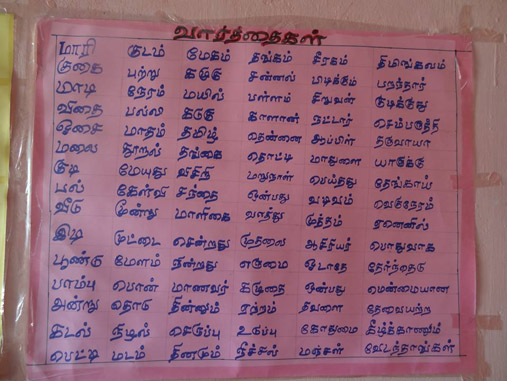 வார்த்தைகள்
மாரி குடம் மேகம் தங்கம் சீரகம் திமிங்கலம்
குகை புற்று கழுகு சன்னல் பிடிக்கும் பறந்தார்
மாடி நேரம் மயில் பள்ளம் சிறுவன் குடிக்குது
விதை பல்லி கடுகு காளான் நட்டார் செம்பருத்தி
ஓசை மாதம் தமிழ் தென்னை ஆப்பிள் திருவாயா
மலை தூறல் தங்கை தொட்டி மாதுளை யாருக்கு
குடி மேயுது விசிறி மறுநாள் பெய்தது தேங்காய்
பல் கேள்வி சந்தை ஒன்பது வடிவம் வெகுநேரம்
வீடு மூன்று மாளிகை வாத்து முத்தம் ஏனெனில்
இடி முட்டை சென்றது முதலை ஆசிரியர் பொதுவாக
பூண்டு மேளம் நின்றது எருமை ஓடாதே தேர்ந்தெடு
பாம்பு பொன் மாணவர் கழுதை ஒன்பது மென்மையான
அன்று தொடு தின்னும் ஏற்றம் தவளை தேவையற்ற
கடல் நிழல் செருப்பு உடுப்பு கோதுமை கீழ்க்காணும்
பெட்டி மடம் தினமும் நீச்சல் மஞ்சள் வேடந்தாங்கள்